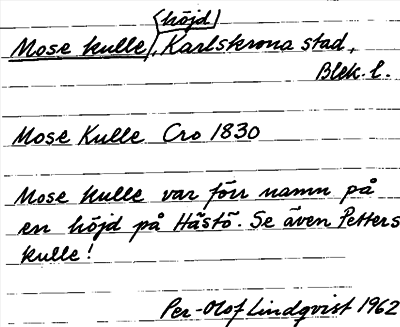 (höjd)
Mose kulle, Karlskrona stad,
Blek. l.
Mose Kulle Cro 1830
Mose kulle var förr namn på
en höjd på Hästö. Se även Petters
kulle!
Per-Olof Lindqvist 1962